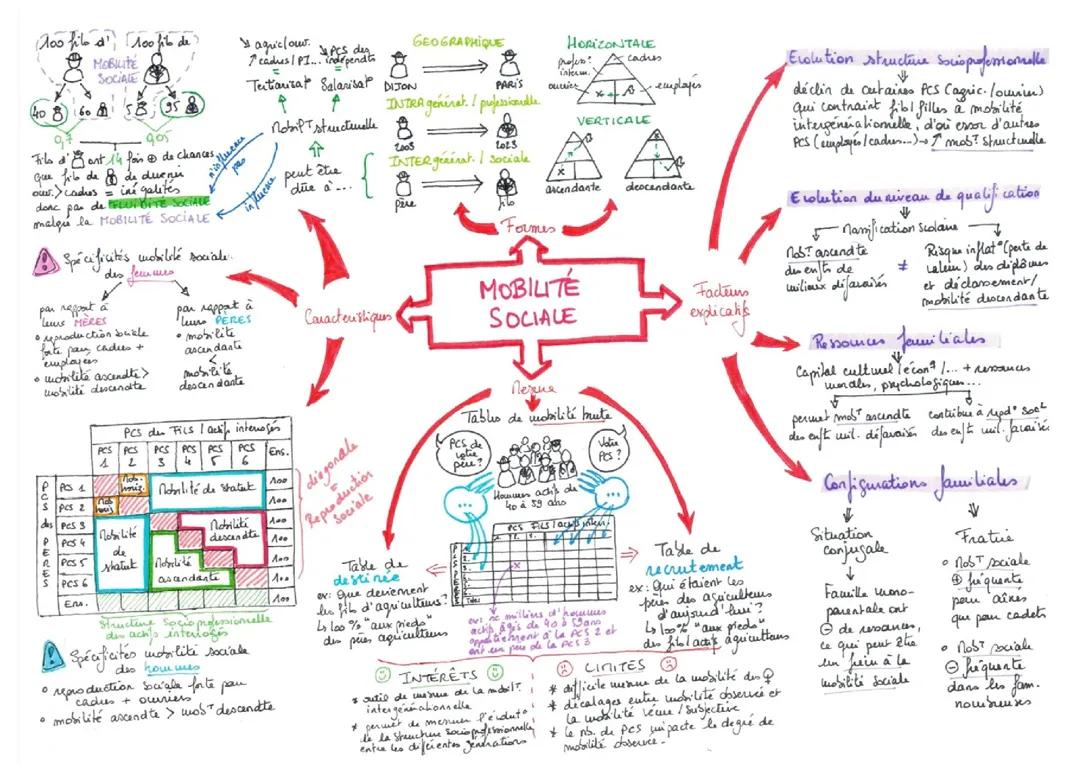 MOBILITÉ
SOCIALE
Formes
GEOGRAPHIQUE
DIJON
PARIS
INTRA générat. / professionelle
2003
2023
INTER générat. / sociale
Père
fils
HORIZONTALE
profess°
interm.
cadres
ouvriers
employés
VERTICALE
ascendante
descendante
Facteurs
explicatifs
Evolution structure socioprofessionnelle
déclin de certaines PCS (agric. / ouvriers)
qui contraint fils / filles à mobilité
intergénérationnelle, d'où essor d'autres
PCS (employés / cadres...) → ↑ mob^T structurelle
Evolution du niveau de qualification
Massification scolaire
Mob^T ascendte
des enfts de
milieux défavorisés
≠
Risque inflat° (perte de
valeur) des diplômes
et déclassement /
mobilité descendante
Ressources familiales
Capital culturel / écon^q / ... + ressources
morales, psychologiques...
permet mob^T ascendte
des enft mil. défavorisés
contribue à repd° soc^le
des enft mil. favorisés
Configurations familiales
Situation
conjugale
Famille mono-
parentale ont
⊖ de ressources,
ce qui peut être
un frein à la
mobilité sociale
Fratrie
• Mob^T sociale
⊕ fréquente
pour aînés
que pour cadets
• Mob^T sociale
⊖ fréquente
dans les fam.
nombreuses
Mesure
Tables de mobilité brute
PCS de
votre
père ?
Votre
PCS ?
...
...
Hommes actifs de
40 à 59 ans
PCS FILS / actifs interr.
PERES
Total
Table de
destinée
ex : Que deviennent
les fils d'agriculteurs ?
↳ 100 % "aux pieds"
des pères agriculteurs
Table de
recrutement
ex : Qui étaient les
pères des agriculteurs
d'aujourd'hui ?
↳ 100 % "aux pieds"
des fils / actifs agriculteurs
ex : x milliers d'hommes
actifs âgés de 40 à 59 ans
appartiennent à la PCS 2 et
ont un père de la PCS 3
INTÉRÊTS
* outil de mesure de la mobil^T
intergénérationnelle
* permet de mesurer l'évolut°
de la structure socioprofessionnelle
entre les différentes générations
LIMITES
* difficile mesure de la mobilité des ♀
* décalages entre mobilité observée et
la mobilité vécue / subjective
* le nb. de PCS impacte le degré de
mobilité observée.
Caractéristiques
100 fils d'
100 fils de
MOBILITÉ
SOCIALE
40
60
5
95
0,7
0,05
Fils d' ont 14 fois ⊕ de chances
que fils de de devenir
ouv. > cadres = inégalités
donc pas de FLUIDITÉ SOCIALE
malgré la MOBILITÉ SOCIALE
n'influence
pas
influence
↘ agric / ouvr.
↗ cadres / PI...
↘ PCS des
indépendts
=
=
Tertiarisat°
Salarisat°
Mobil^T structurelle
peut être
dûe à ...
Spécificités mobilité sociale
des femmes
par rapport à
leurs MÈRES
• reproduction sociale
forte pour cadres +
employées
• mobilité ascendte >
mobilité descendte
par rapport à
leurs PÈRES
• mobilité
ascendante
<
mobilité
descendante
PCS des FILS / actifs interrogés
PCS 1
PCS 2
PCS 3
PCS 4
PCS 5
PCS 6
Ens.
PCS des PERES
PCS 1
Mob. horiz.
Mobilité de statut
100
PCS 2
Mob horiz.
100
PCS 3
Mobilité
de
statut
Mobilité
descendte
100
PCS 4
100
PCS 5
Mobilité
ascendante
100
PCS 6
100
Ens.
diagonale
=
Reproduction
sociale
Structure socioprofessionnelle
des actifs interrogés
Spécificités mobilité sociale
des hommes
• reproduction sociale forte pour
cadres + ouvriers
• mobilité ascendte > mob^T descendte